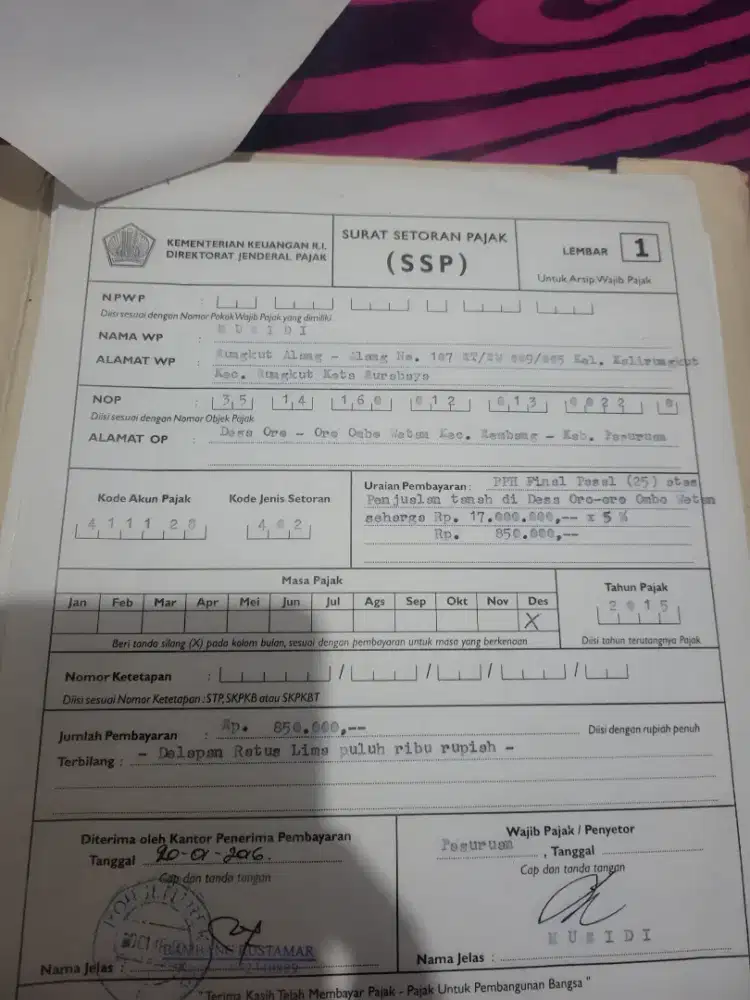 KEMENTERIAN KEUANGAN R.I.
DIREKTORAT JENDERAL PAJAK
SURAT SETORAN PAJAK
(SSP)
LEMBAR 1
Untuk Arsip Wajib Pajak
NPWP :
Diisi sesuai dengan Nomor Pokok Wajib Pajak yang dimiliki
NAMA WP : MUSIDI
ALAMAT WP : Rungkut Alang - Alang No. 107 RT/RW 009/005 Kel. Kalirungkut
Kec. Rungkut Kota Surabaya
NOP : 35 14 160 012 013 0022 0
Diisi sesuai dengan Nomor Objek Pajak
ALAMAT OP : Desa Oro - Oro Ombo Wetan Kec. Rembang - Kab. Pasuruan
Kode Akun Pajak
411128
Kode Jenis Setoran
402
Uraian Pembayaran : PPH Final Pasal (25) atas
Penjualan tanah di Desa Oro-oro Ombo Wetan
seharga Rp. 17.000.000,-- x 5 %
Rp. 850.000,--
Masa Pajak
Jan Feb Mar Apr Mei Jun Jul Ags Sep Okt Nov Des
X
Beri tanda silang (X) pada kolom bulan, sesuai dengan pembayaran untuk masa yang berkenaan
Tahun Pajak
2015
Diisi tahun terutangnya Pajak
Nomor Ketetapan : / / / /
Diisi sesuai Nomor Ketetapan : STP, SKPKB atau SKPKBT
Jumlah Pembayaran : Rp. 850.000,-- Diisi dengan rupiah penuh
Terbilang : - Delapan Ratus Lima puluh ribu rupiah -
Diterima oleh Kantor Penerima Pembayaran
Tanggal
Cap dan tanda tangan
RUSTAMAR
Nama Jelas :
Wajib Pajak / Penyetor
Pasuruan , Tanggal
Cap dan tanda tangan
MUSIDI
Nama Jelas :
" Terima Kasih Telah Membayar Pajak - Pajak Untuk Pembangunan Bangsa "